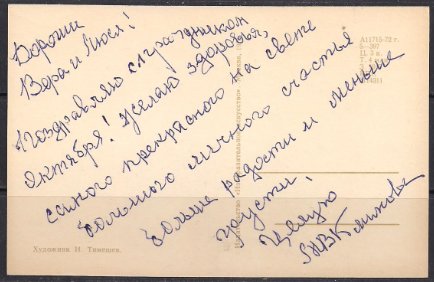 Дорогие
Вера и Люся!
Поздравляю с праздником
Октября! Желаю здоровья,
самого прекрасного на свете
большого личного счастья
больше радости и меньше
грусти.
Целую
Художник Н. Тимешев.
А11715-72 г.